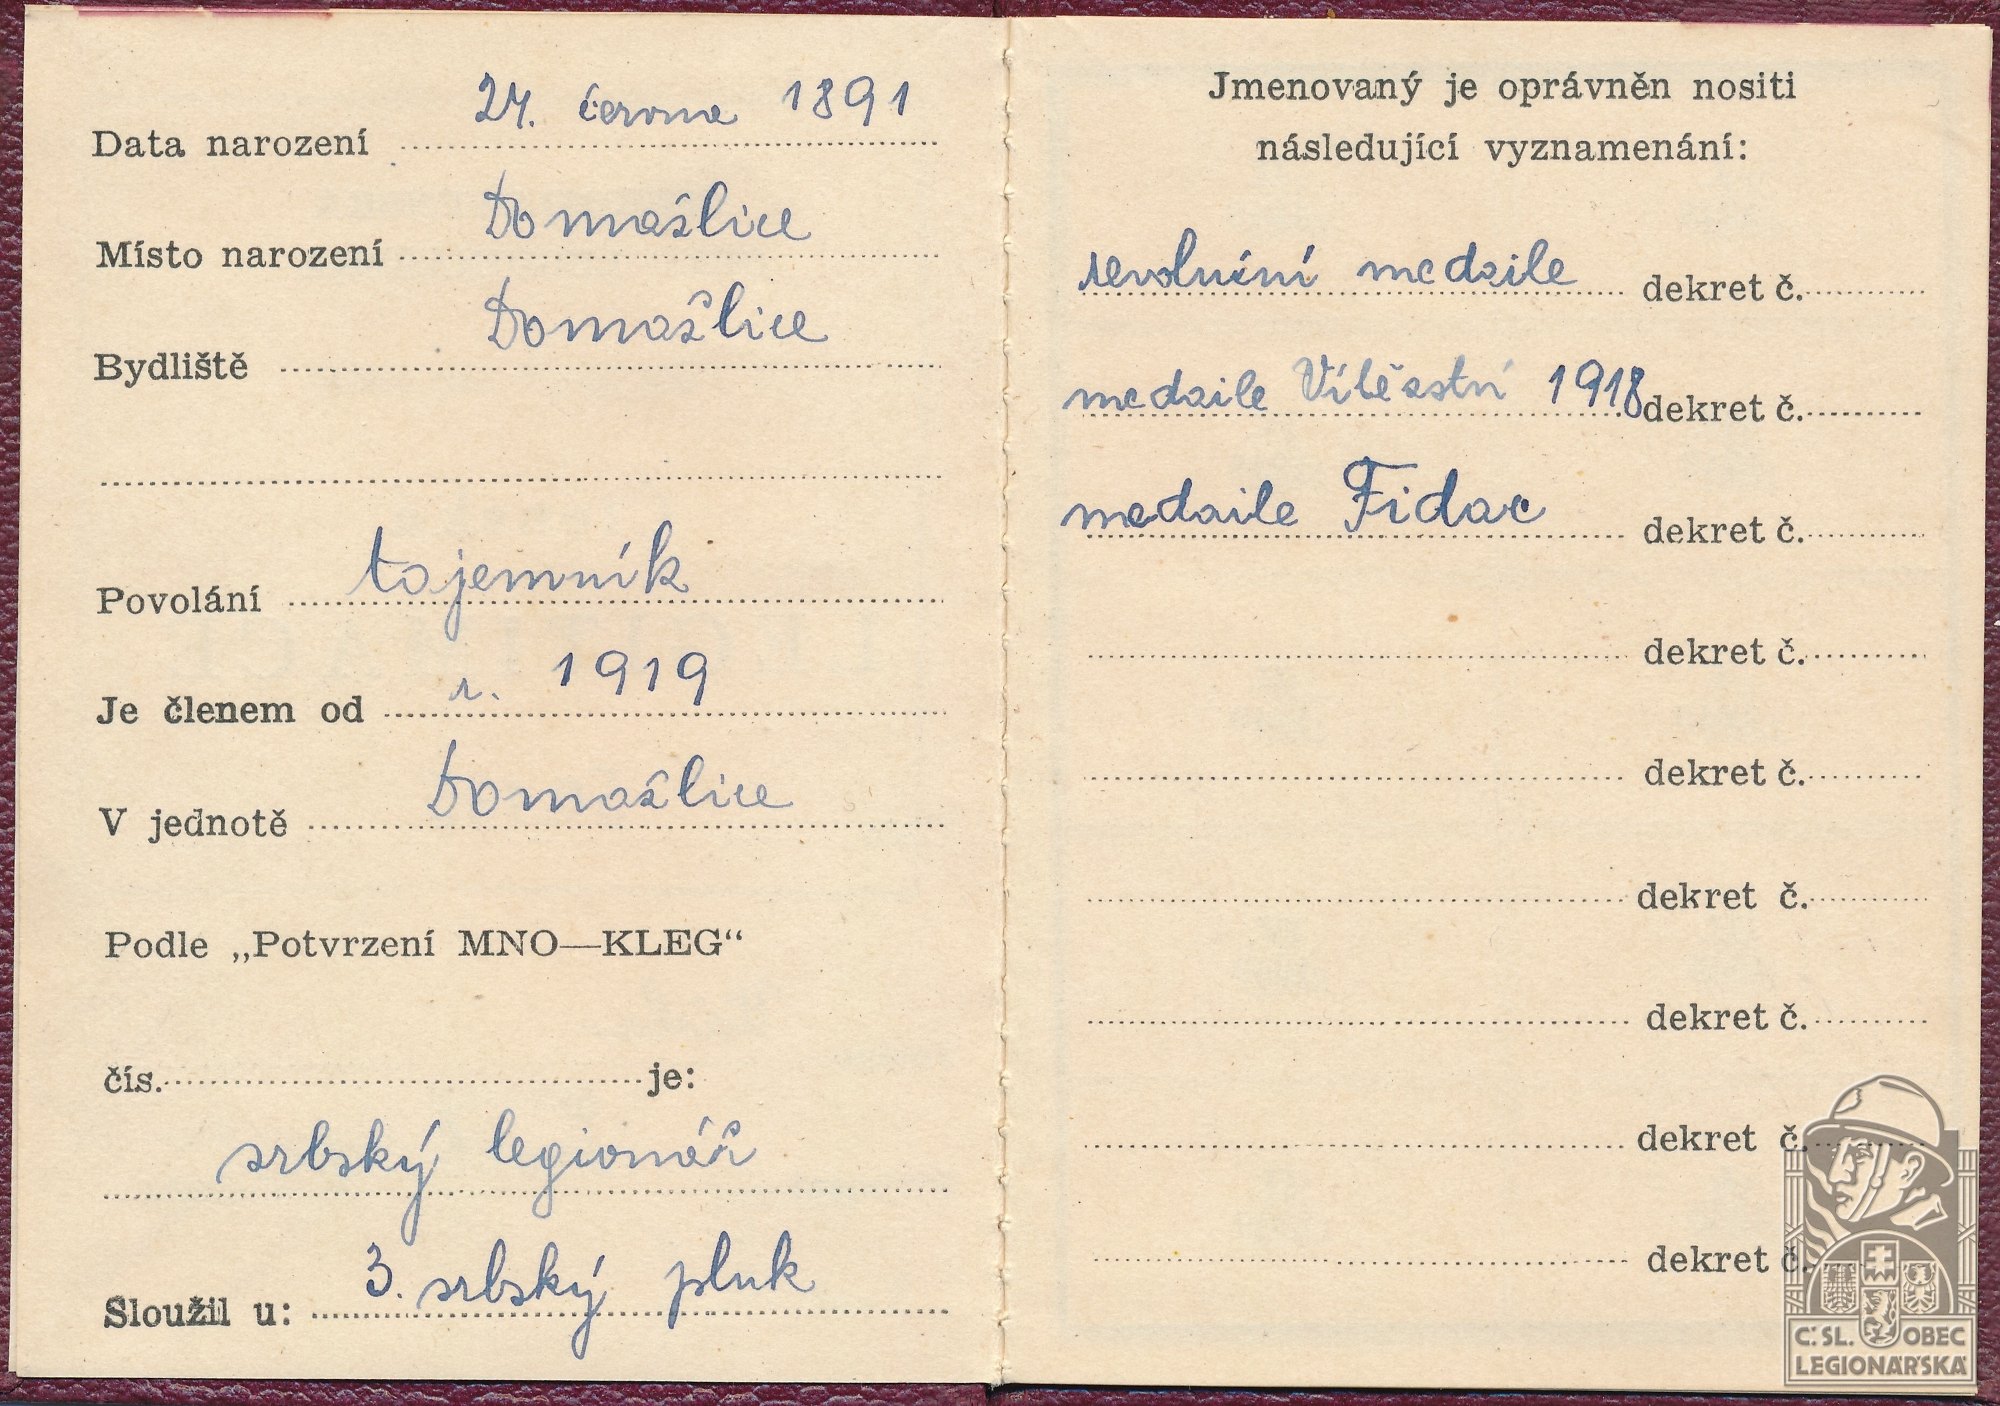 Data narození 24. června 1891
Místo narození Domašlice
Bydliště Domašlice
Povolání tajemník
Je členem od r. 1919
V jednotě Domašlice
Podle „Potvrzení MNO—KLEG“
čís. je:
srbský legionář
Sloužil u: 3. srbský pluk
Jmenovaný je oprávněn nositi
následující vyznamenání:
revoluční medaile dekret č.
medaile Vítězství 1918 dekret č.
medaile Fidac dekret č.
dekret č.
dekret č.
dekret č.
dekret č.
dekret č.
dekret č.
Č. SL. OBEC
LEGIONÁŘSKÁ